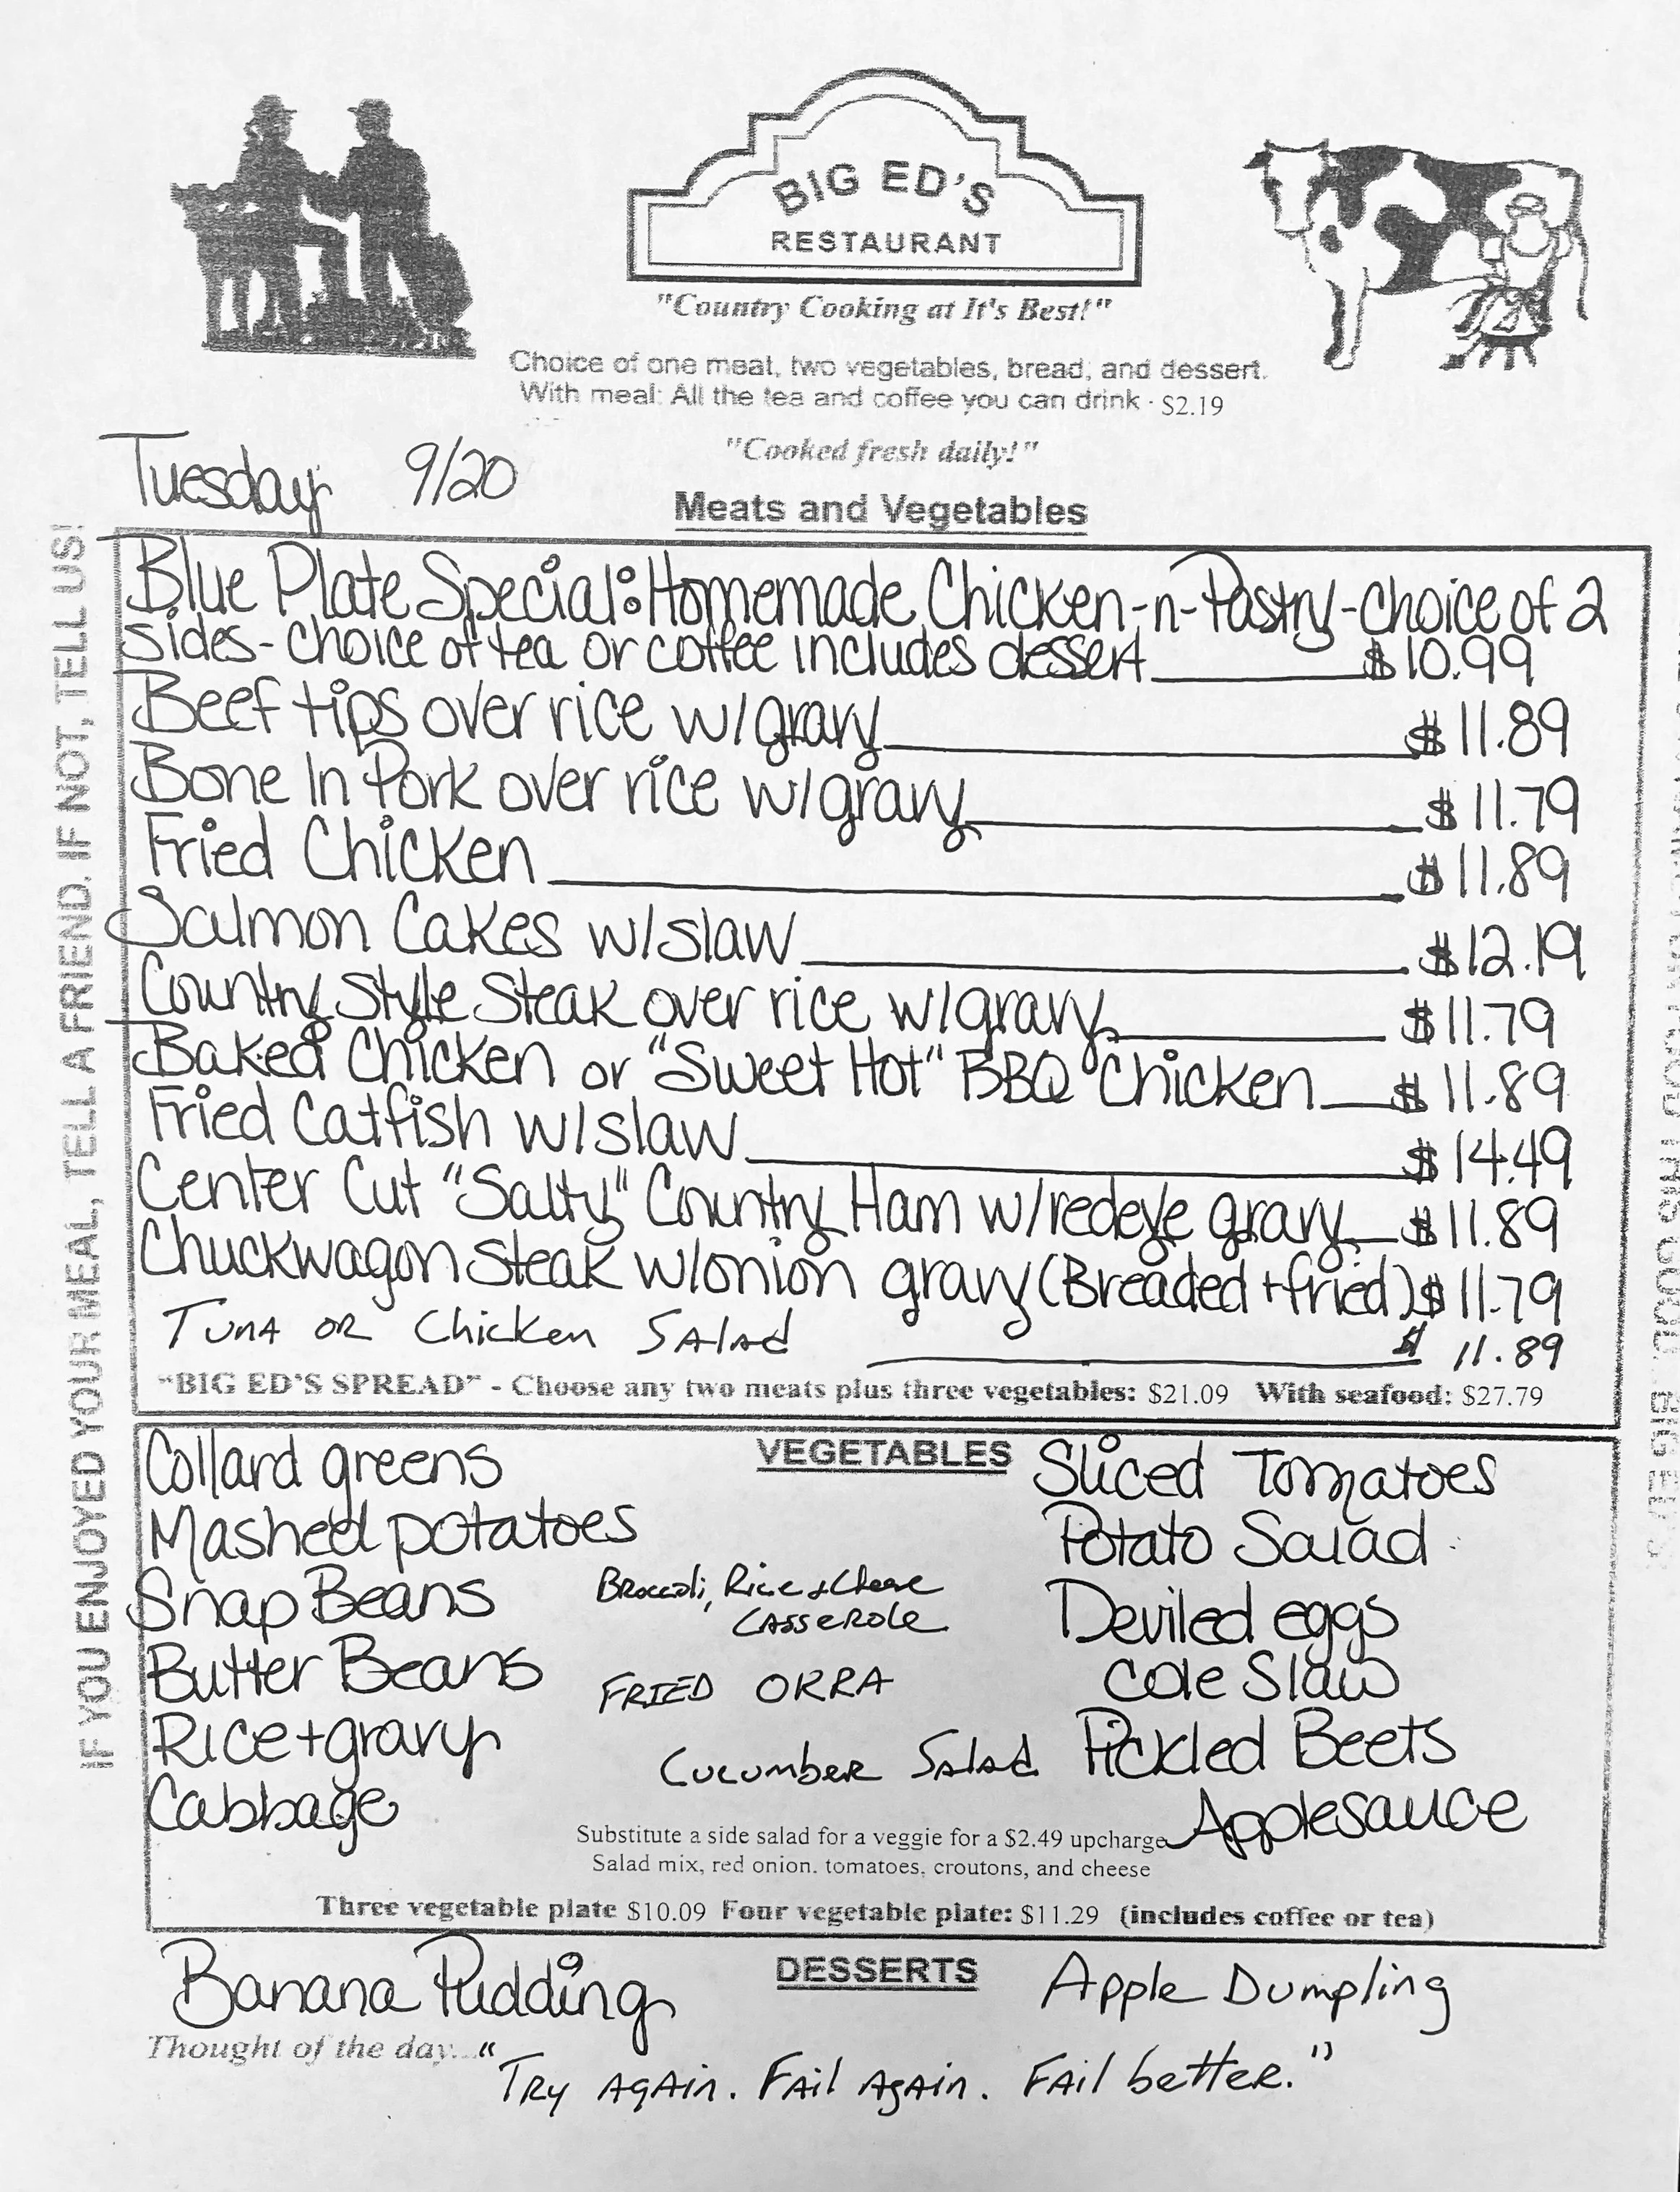 BIG ED'S
RESTAURANT
"Country Cooking at It's Best!"
Choice of one meat, two vegetables, bread, and dessert.
With meal: All the tea and coffee you can drink · $2.19
"Cooked fresh daily!"
Tuesday 9/20
Meats and Vegetables
IF YOU ENJOYED YOUR MEAL, TELL A FRIEND. IF NOT, TELL US!
Blue Plate Special: Homemade Chicken-n-Pastry-choice of 2
sides- choice of tea or coffee includes dessert $10.99
Beef tips over rice w/gravy $11.89
Bone In Pork over rice w/gravy $11.79
Fried Chicken $11.89
Salmon Cakes w/slaw $12.19
Country Style Steak over rice w/gravy $11.79
Baked Chicken or "Sweet Hot" BBQ Chicken $11.89
Fried Catfish w/slaw $14.49
Center Cut "Salty" Country Ham w/redeye gravy $11.89
Chuckwagon Steak w/onion gravy (Breaded + fried) $11.79
Tuna or Chicken Salad $11.89
"BIG ED'S SPREAD" - Choose any two meats plus three vegetables: $21.09 With seafood: $27.79
VEGETABLES
Collard greens
Mashed potatoes
Snap Beans
Butter Beans
Rice + gravy
Cabbage
Broccoli, Rice + Cheese
Casserole
FRIED OKRA
Cucumber Salad
Sliced Tomatoes
Potato Salad
Deviled eggs
Cole Slaw
Pickled Beets
Applesauce
Substitute a side salad for a veggie for a $2.49 upcharge
Salad mix, red onion, tomatoes, croutons, and cheese
Three vegetable plate $10.09 Four vegetable plate: $11.29 (includes coffee or tea)
DESSERTS
Banana Pudding
Apple Dumpling
Thought of the day... "Try Again. Fail Again. Fail better."